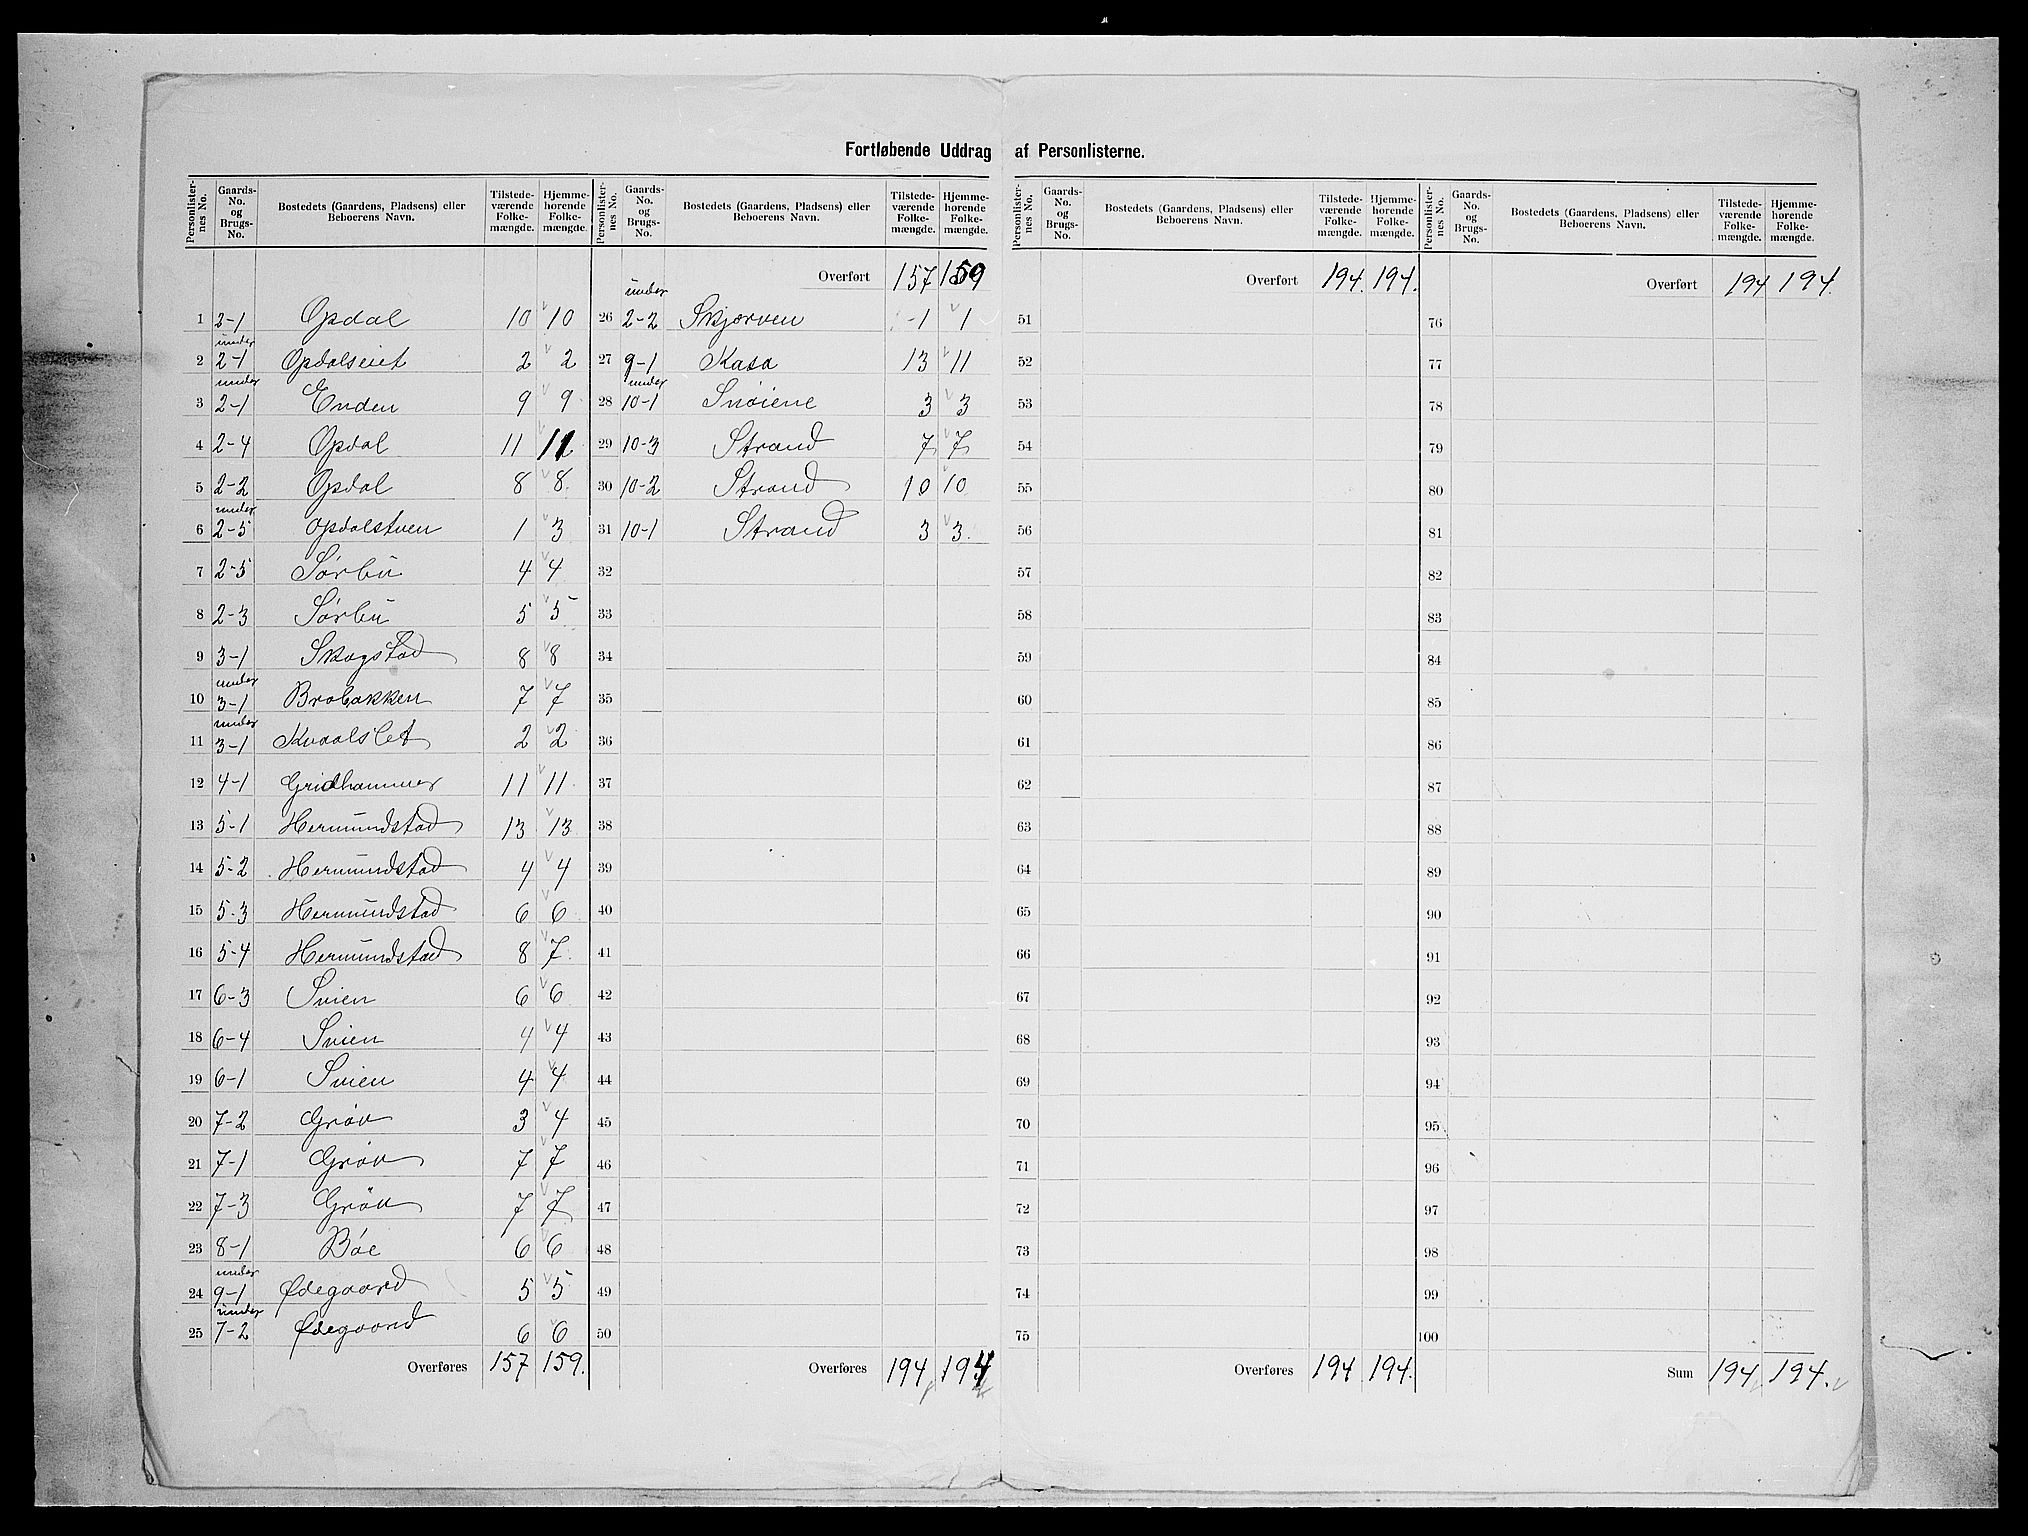 Fortløbende Uddrag af Personlisterne.
Personlister-nes No. | Gaards-No. og Brugs-No. | Bostedets (Gaardens, Pladsens) eller Beboerens Navn. | Tilstede-værende Folke-mængde. | Hjemme-hørende Folke-mængde.
1 2-1 Opdal 10 10
2 under 2-1 Opdalseiet 2 2
3 under 2-1 Enden 9 9
4 2-4 Opdal 11 11
5 2-2 Opdal 8 8
6 under 2-5 Opdalstuen 1 3
7 2-5 Sørbu 4 4
8 2-3 Sørbu 5 5
9 3-1 Skogstad 8 8
10 under 3-1 Brobakken 7 7
11 under 3-1 Kvaalslet 2 2
12 4-1 Gridhammer 11 11
13 5-1 Hermundstad 13 13
14 5-2 Hermundstad 4 4
15 5-3 Hermundstad 6 6
16 5-4 Hermundstad 8 7
17 6-3 Svien 6 6
18 6-4 Svien 4 4
19 6-1 Svien 4 4
20 7-2 Grøv 3 4
21 7-1 Grøv 7 7
22 7-3 Grøv 7 7
23 8-1 Bøe 6 6
24 under 9-1 Ødegaard 5 5
25 under 7-2 Ødegaard 6 6
Overføres 157 159.
Personlister-nes No. | Gaards-No. og Brugs-No. | Bostedets (Gaardens, Pladsens) eller Beboerens Navn. | Tilstede-værende Folke-mængde. | Hjemme-hørende Folke-mængde.
Overført 157 159
26 under 2-2 Skjerven 1 1
27 9-1 Kasa 13 11
28 under 10-1 Snøiene 3 3
29 10-3 Strand 7 7
30 10-2 Strand 10 10
31 10-1 Strand 3 3
32
33
34
35
36
37
38
39
40
41
42
43
44
45
46
47
48
49
50
Overføres 194 194
Personlister-nes No. | Gaards-No. og Brugs-No. | Bostedets (Gaardens, Pladsens) eller Beboerens Navn. | Tilstede-værende Folke-mængde. | Hjemme-hørende Folke-mængde.
Overført 194. 194.
51
52
53
54
55
56
57
58
59
60
61
62
63
64
65
66
67
68
69
70
71
72
73
74
75
Overføres 194 194.
Personlister-nes No. | Gaards-No. og Brugs-No. | Bostedets (Gaardens, Pladsens) eller Beboerens Navn. | Tilstede-værende Folke-mængde. | Hjemme-hørende Folke-mængde.
Overført 194 194.
76
77
78
79
80
81
82
83
84
85
86
87
88
89
90
91
92
93
94
95
96
97
98
99
100
Sum 194 194.